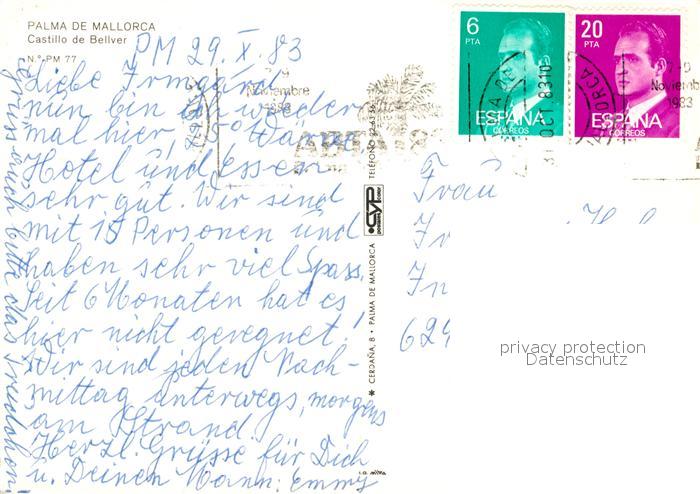 PALMA DE MALLORCA
Castillo de Bellver
N.º PM 77
PM 29. X. 83
Liebe Irmgard
nun bin ich wieder
mal hier.
Hotel und Essen
sehr gut. Wir sind
mit 15 Personen und
haben sehr viel Spass.
Seit 6 Monaten hat es
hier nicht geregnet!
Wir sind jeden Nach-
mittag unterwegs, morgens
am Strand.
Herzl. Grüsse für Dich
u. Deinen Mann: Emmy
CERDAÑA, 8 - PALMA DE MALLORCA
CYP
6
PTA
ESPAÑA
CORREOS
20
PTA
ESPAÑA
CORREOS
Noviembre
1983
31 OCT. 83
Noviemb
1983
Frau
624
privacy protection
Datenschutz